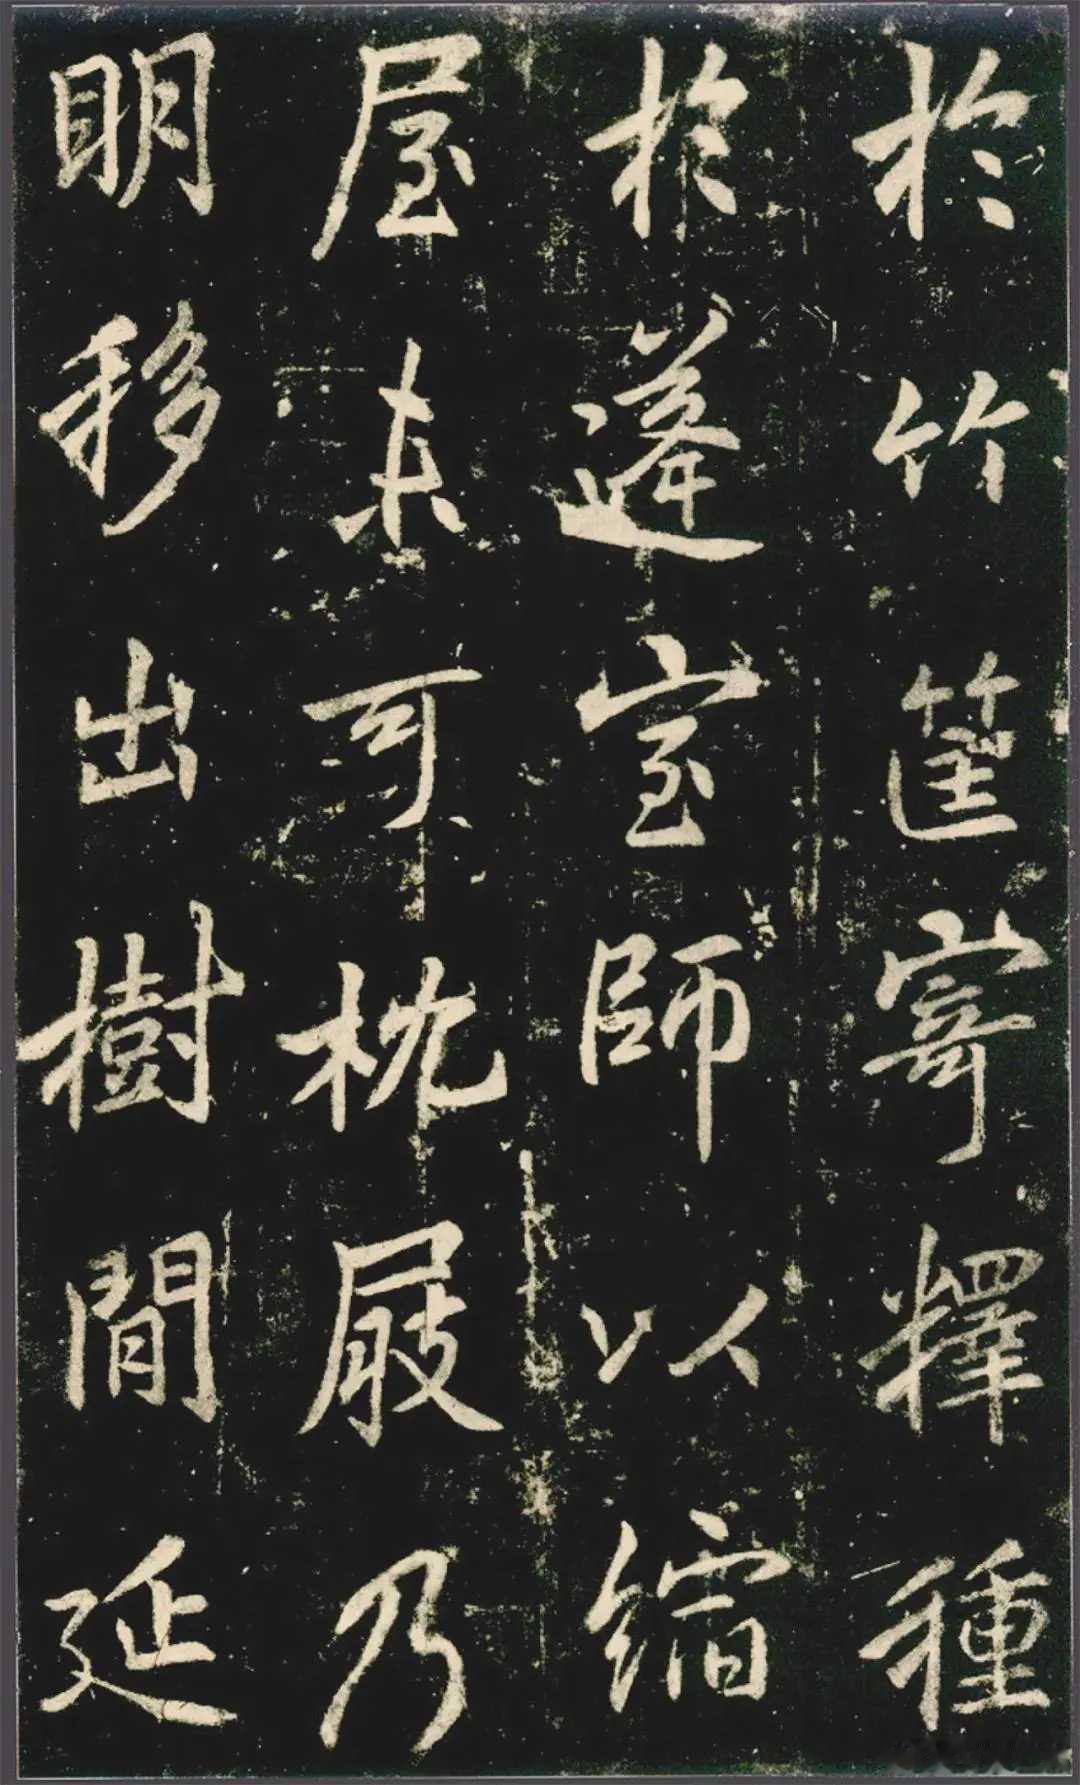 於竹筐寄釋種
於蓬室師以縮
屋未可枕屐乃
明移出樹閒延